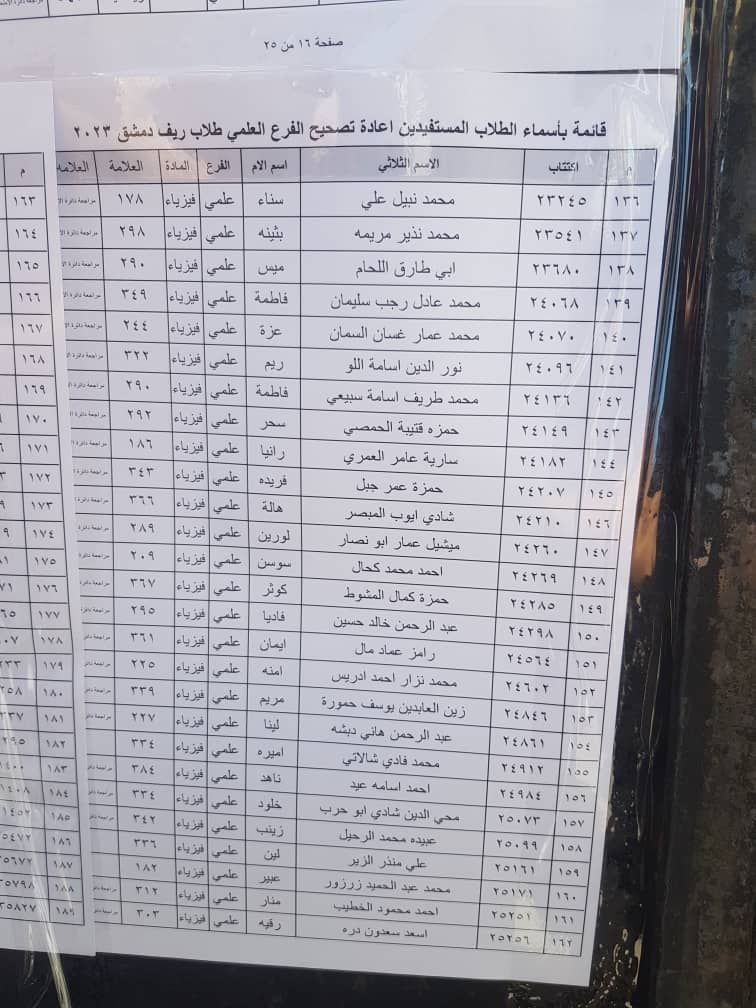 صفحة ١٦ من ٢٥
قائمة بأسماء الطلاب المستفيدين اعادة تصحيح الفرع العلمي طلاب ريف دمشق ٢٠٢٣
م اكتتاب الاسم الثلاثي اسم الام الفرع المادة العلامة العلامه
١٣٦ ٢٣٢٤٥ محمد نبيل علي سناء علمي فيزياء ١٧٨ مراجعة دائرة الا
١٣٧ ٢٣٥٤١ محمد نذير مريمه بثينه علمي فيزياء ٢٩٨ مراجعة دائرة الا
١٣٨ ٢٣٦٨٠ ابي طارق اللحام ميس علمي فيزياء ٢٩٠ مراجعة دائرة الا
١٣٩ ٢٤٠٦٨ محمد عادل رجب سليمان فاطمة علمي فيزياء ٣٤٩ مراجعة دائرة الا
١٤٠ ٢٤٠٧٠ محمد عمار غسان السمان عزة علمي فيزياء ٢٤٤ مراجعة دائرة الا
١٤١ ٢٤٠٩٦ نور الدين اسامة اللو ريم علمي فيزياء ٣٢٢ مراجعة دائرة الا
١٤٢ ٢٤١٣٦ محمد طريف اسامة سبيعي فاطمة علمي فيزياء ٢٩٠ مراجعة دائرة الا
١٤٣ ٢٤١٤٩ حمزه قتيبة الحمصي سحر علمي فيزياء ٢٩٢ مراجعة دائرة الا
١٤٤ ٢٤١٨٢ سارية عامر العمري رانيا علمي فيزياء ١٨٦ مراجعة دائرة ا
١٤٥ ٢٤٢٠٧ حمزة عمر جبل فريده علمي فيزياء ٣٤٣ مراجعة دائرة ا
١٤٦ ٢٤٢١٠ شادي ايوب المبصر هالة علمي فيزياء ٣٦٦ مراجعة دائرة ا
١٤٧ ٢٤٢٦٠ ميشيل عمار ابو نصار لورين علمي فيزياء ٢٨٩ مراجعة دائرة
١٤٨ ٢٤٢٦٩ احمد محمد كحال سوسن علمي فيزياء ٢٠٩ مراجعة دائرة
١٤٩ ٢٤٢٨٥ حمزة كمال المشوط كوثر علمي فيزياء ٣٦٧ مراجعة دائرة
١٥٠ ٢٤٢٩٨ عبد الرحمن خالد حسين فاديا علمي فيزياء ٢٩٥ مراجعة دائرة
١٥١ ٢٤٥٦٤ رامز عماد مال ايمان علمي فيزياء ٣٦١ مراجعة دائرة
١٥٢ ٢٤٦٠٢ محمد نزار احمد ادريس امنه علمي فيزياء ٢٢٥ مراجعة دائرة
١٥٣ ٢٤٨٤٦ زين العابدين يوسف حمورة مريم علمي فيزياء ٣٣٩ مراجعة دائرة
١٥٤ ٢٤٨٦١ عبد الرحمن هاني دبشه لينا علمي فيزياء ٢٢٧ مراجعة دائر
١٥٥ ٢٤٩١٢ محمد فادي شالاتي اميره علمي فيزياء ٣٣٤ مراجعة دائر
١٥٦ ٢٤٩٨٤ احمد اسامه عيد ناهد علمي فيزياء ٣٨٤ مراجعة دائر
١٥٧ ٢٥٠٧٣ محي الدين شادي ابو حرب خلود علمي فيزياء ٣٣٤ مراجعة دائر
١٥٨ ٢٥٠٩٩ عبيده محمد الرحيل زينب علمي فيزياء ٣٤٢ مراجعة دائر
١٥٩ ٢٥١٦١ علي منذر الزير لين علمي فيزياء ٣٣٦
١٦٠ ٢٥١٧١ محمد عبد الحميد زرزور عبير علمي فيزياء ١٨٢
١٦١ ٢٥٢٥١ احمد محمود الخطيب منار علمي فيزياء ٣١٢
١٦٢ ٢٥٢٥٦ اسعد سعدون دره رقيه علمي فيزياء ٣٠٣
م
١٦٣
١٦٤
١٦٥
١٦٦
١٦٧
١٦٨
١٦٩
١٧٠
١٧١
١٧٢
١٧٣
١٧٤
١٧٥
١٧٦
١٧٧
١٧٨
١٧٩
١٨٠
١٨١
١٨٢
١٨٣
١٨٤
١٨٥
١٨٦
١٨٧
١٨٨
١٨٩